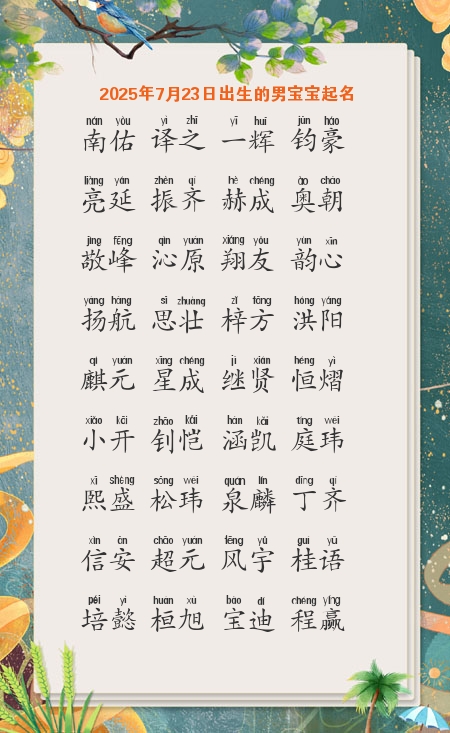 2025年7月23日出生的男宝宝起名
nán yòu yì zhī yī huī jūn háo
南佑 译之 一辉 钧豪
liàng yán zhèn qí hè chéng ào cháo
亮延 振齐 赫成 奥朝
jìng fēng qìn yuán xiáng yǒu yùn xīn
敬峰 沁原 翔友 韵心
yáng háng sī zhuàng zǐ fāng hóng yáng
扬航 思壮 梓方 洪阳
qí yuán xīng chéng jì xián héng yì
麒元 星成 继贤 恒熠
xiǎo kāi zhāo kǎi hán kǎi tíng wěi
小开 钊恺 涵凯 庭玮
xī shèng sōng wěi quán lín dīng qí
熙盛 松玮 泉麟 丁齐
xìn ān chāo yuán fēng yǔ guì yǔ
信安 超元 风宇 桂语
péi yì huán xù bǎo dí chéng yíng
培懿 桓旭 宝迪 程赢